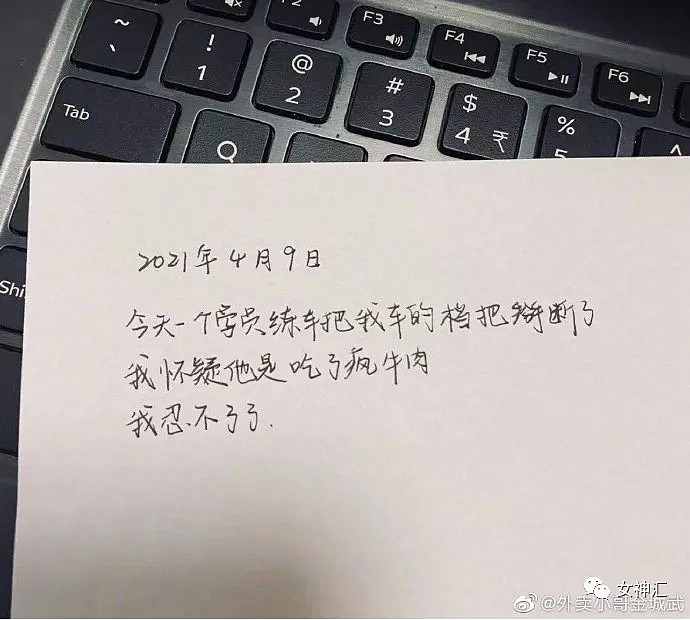 ~
` 
!
1
@
2
#
3
$
4 ₹
%
5
^
F2
F3
F4
F5
F6
Tab
Q
Shi
2021年4月9日
今天一个学员练车把我车的档把掰断了
我怀疑他是吃了疯牛肉
我忍不了了.
女神汇
@外卖小哥金城武